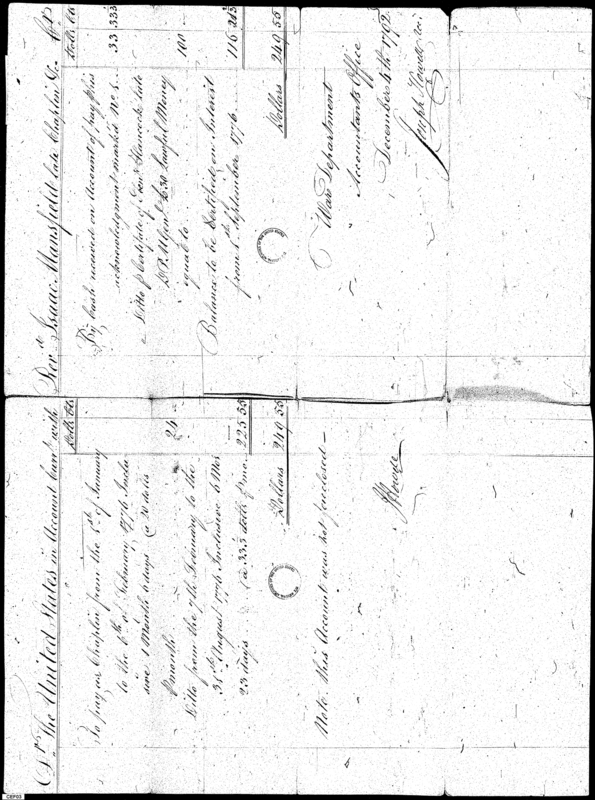 Dr. The United States in Account Curr.t with Rev.d Isaac Mansfield late Chaplin &c. Cr.
Dolls Cts
To pay as Chaplin from the 1st of January
to the 6th of February 1776 Inclu
sive 1 Month 6 days @ 20 dolls
p month 24
Ditto from the 7th February to the
31st August 1776 Inclusive 6 Mos
23 days @ 33⅓ dolls p mo. 225 55
Dollars 249 55
Note this Account was not enclosed—
J Howell
Dolls Cts
By Cash received on Account of pay p his
acknowledgment marked No 1 33 333
Ditto p Certificate of
£30 Lawful Money
equal to 100
Balance to be Certified on Interest
from 1st September 1776 116 21⅔
Dollars 249 55
War Department
Accountants Office
December 4th 1792
Joseph Howell
CEF03